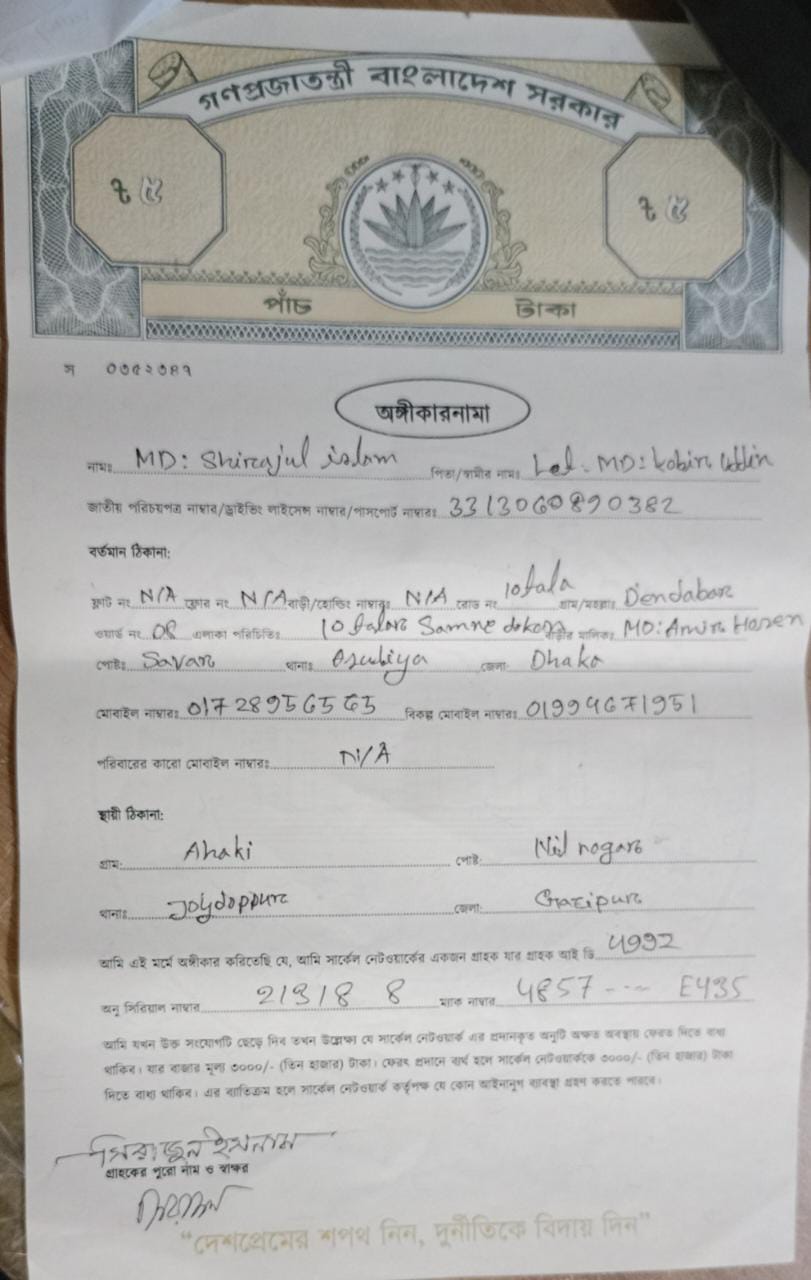 গণপ্রজাতন্ত্রী বাংলাদেশ সরকার
৳ ৫ ৳ ৫
পাঁচ টাকা
স ০৩৫২৩৪৭
অঙ্গীকারনামা
নামঃ MD: Shirajul islam পিতা/স্বামীর নামঃ Let. MD: kobir uddin
জাতীয় পরিচয়পত্র নাম্বার/ড্রাইভিং লাইসেন্স নাম্বার/পাসপোর্ট নাম্বারঃ 3313060890382
বর্তমান ঠিকানা:
ফ্লাট নং N/A ফ্লোর নং N/A বাড়ী/হোল্ডিং নাম্বারঃ N/A রোড নং 10 tala গ্রাম/মহল্লাঃ Dendabar
ওয়ার্ড নং 08 এলাকা পরিচিতিঃ 10 talar Samne dokan বাড়ীর মালিকঃ MD: Amir Hosen
পোষ্টঃ Savar থানাঃ Asuliya জেলাঃ Dhaka
মোবাইল নাম্বারঃ 01728956565 বিকল্প মোবাইল নাম্বারঃ 01994671951
পরিবারের কারো মোবাইল নাম্বারঃ N/A
স্থায়ী ঠিকানা:
গ্রাম: Ahaki পোষ্ট: Nil nogar
থানাঃ Joydappur জেলা: Gazipur
আমি এই মর্মে অঙ্গীকার করিতেছি যে, আমি সার্কেল নেটওয়ার্কের একজন গ্রাহক যার গ্রাহক আই ডি 4992
অনু সিরিয়াল নাম্বার 21318 8 ম্যাক নাম্বার 4857--- E435
আমি যখন উক্ত সংযোগটি ছেড়ে দিব তখন উল্লেক্ষ্য যে সার্কেল নেটওয়ার্ক এর প্রদানকৃত অনুটি অক্ষত অবস্থায় ফেরত দিতে বাধ্য
থাকিব। যার বাজার মূল্য ৩০০০/- (তিন হাজার) টাকা। ফেরৎ প্রদানে ব্যর্থ হলে সার্কেল নেটওয়ার্ককে ৩০০০/- (তিন হাজার) টাকা
দিতে বাধ্য থাকিব। এর ব্যতিক্রম হলে সার্কেল নেটওয়ার্ক কর্তৃপক্ষ যে কোন আইনানুগ ব্যবস্থা গ্রহণ করতে পারবে।
সিরাজুল ইসলাম
গ্রাহকের পুরো নাম ও স্বাক্ষর
“দেশপ্রেমের শপথ নিন, দুর্নীতিকে বিদায় দিন”